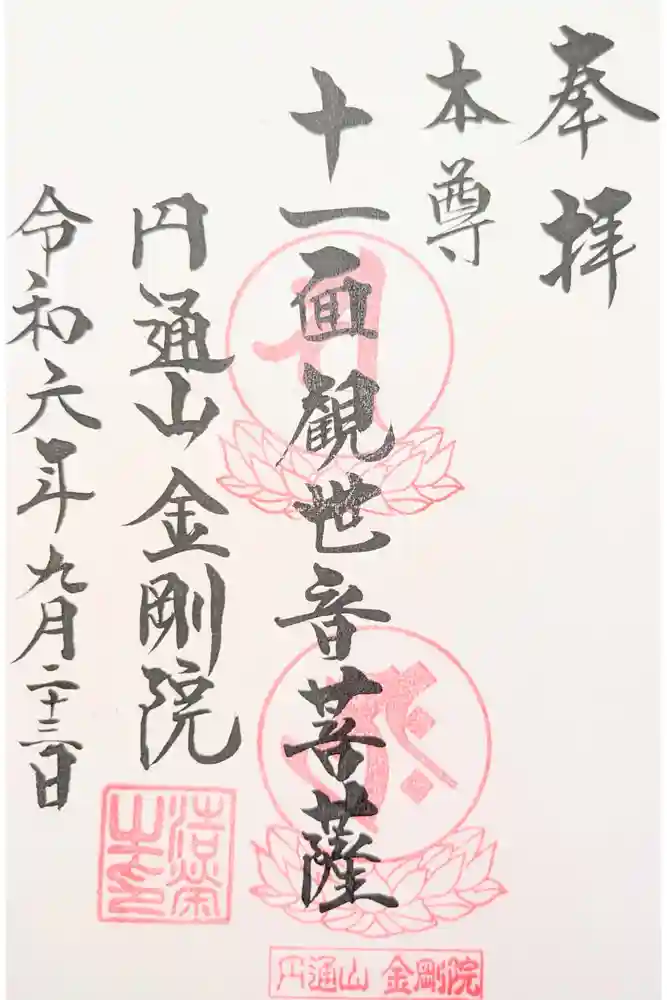 奉拝
本尊
十一面観世音菩薩
円通山金剛院
令和六年九月二十三日
円通山 金剛院